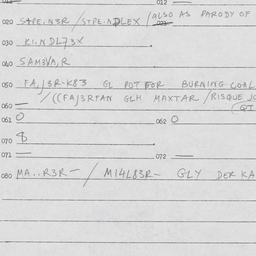 012
020 STPE.N3R / STPE.NDLEX / (ALSO AS PARODY OF
030 KI.NDL73X
040 SAM3VA,R
050 FA,J3R-K83 GL POT FOR BURNING COAL
/((FAJ3RPAN GLH MAXTAR / RISQUE JO
060 — (QT
061 0 062 0
070 8
071 — 072 —
080 MA..R3R— / MI4L83R— GLY DER KA